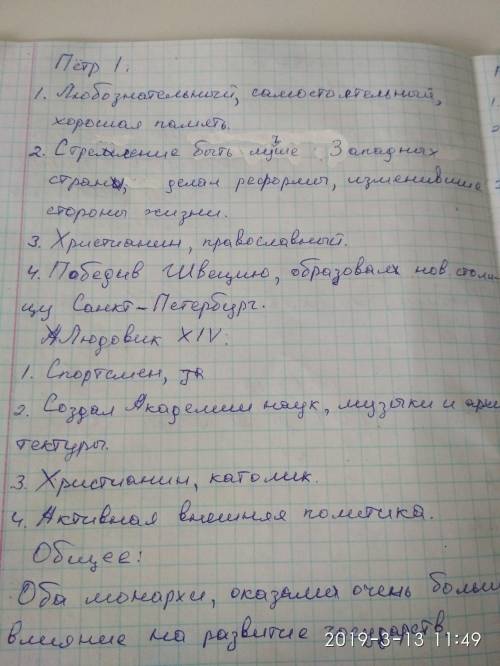 Пётр 1.
1. Любознательный, самостоятельный,
хорошая память.
2. Стремление быть лучше Западных
стран, делал реформы, изменившие
стороны жизни.
3. Христианин, православный.
4. Победив Швецию, образовал нов столи-
цу Санкт-Петербург.
Людовик XIV:
1. Спортсмен,
2. Создал Академии наук, музыки и архи
тектуры.
3. Христианин, католик.
4. Активная внешняя политика.
Общее:
Оба монархи, оказали очень больш
влияние на развитие государств
2019-3-13 11:49